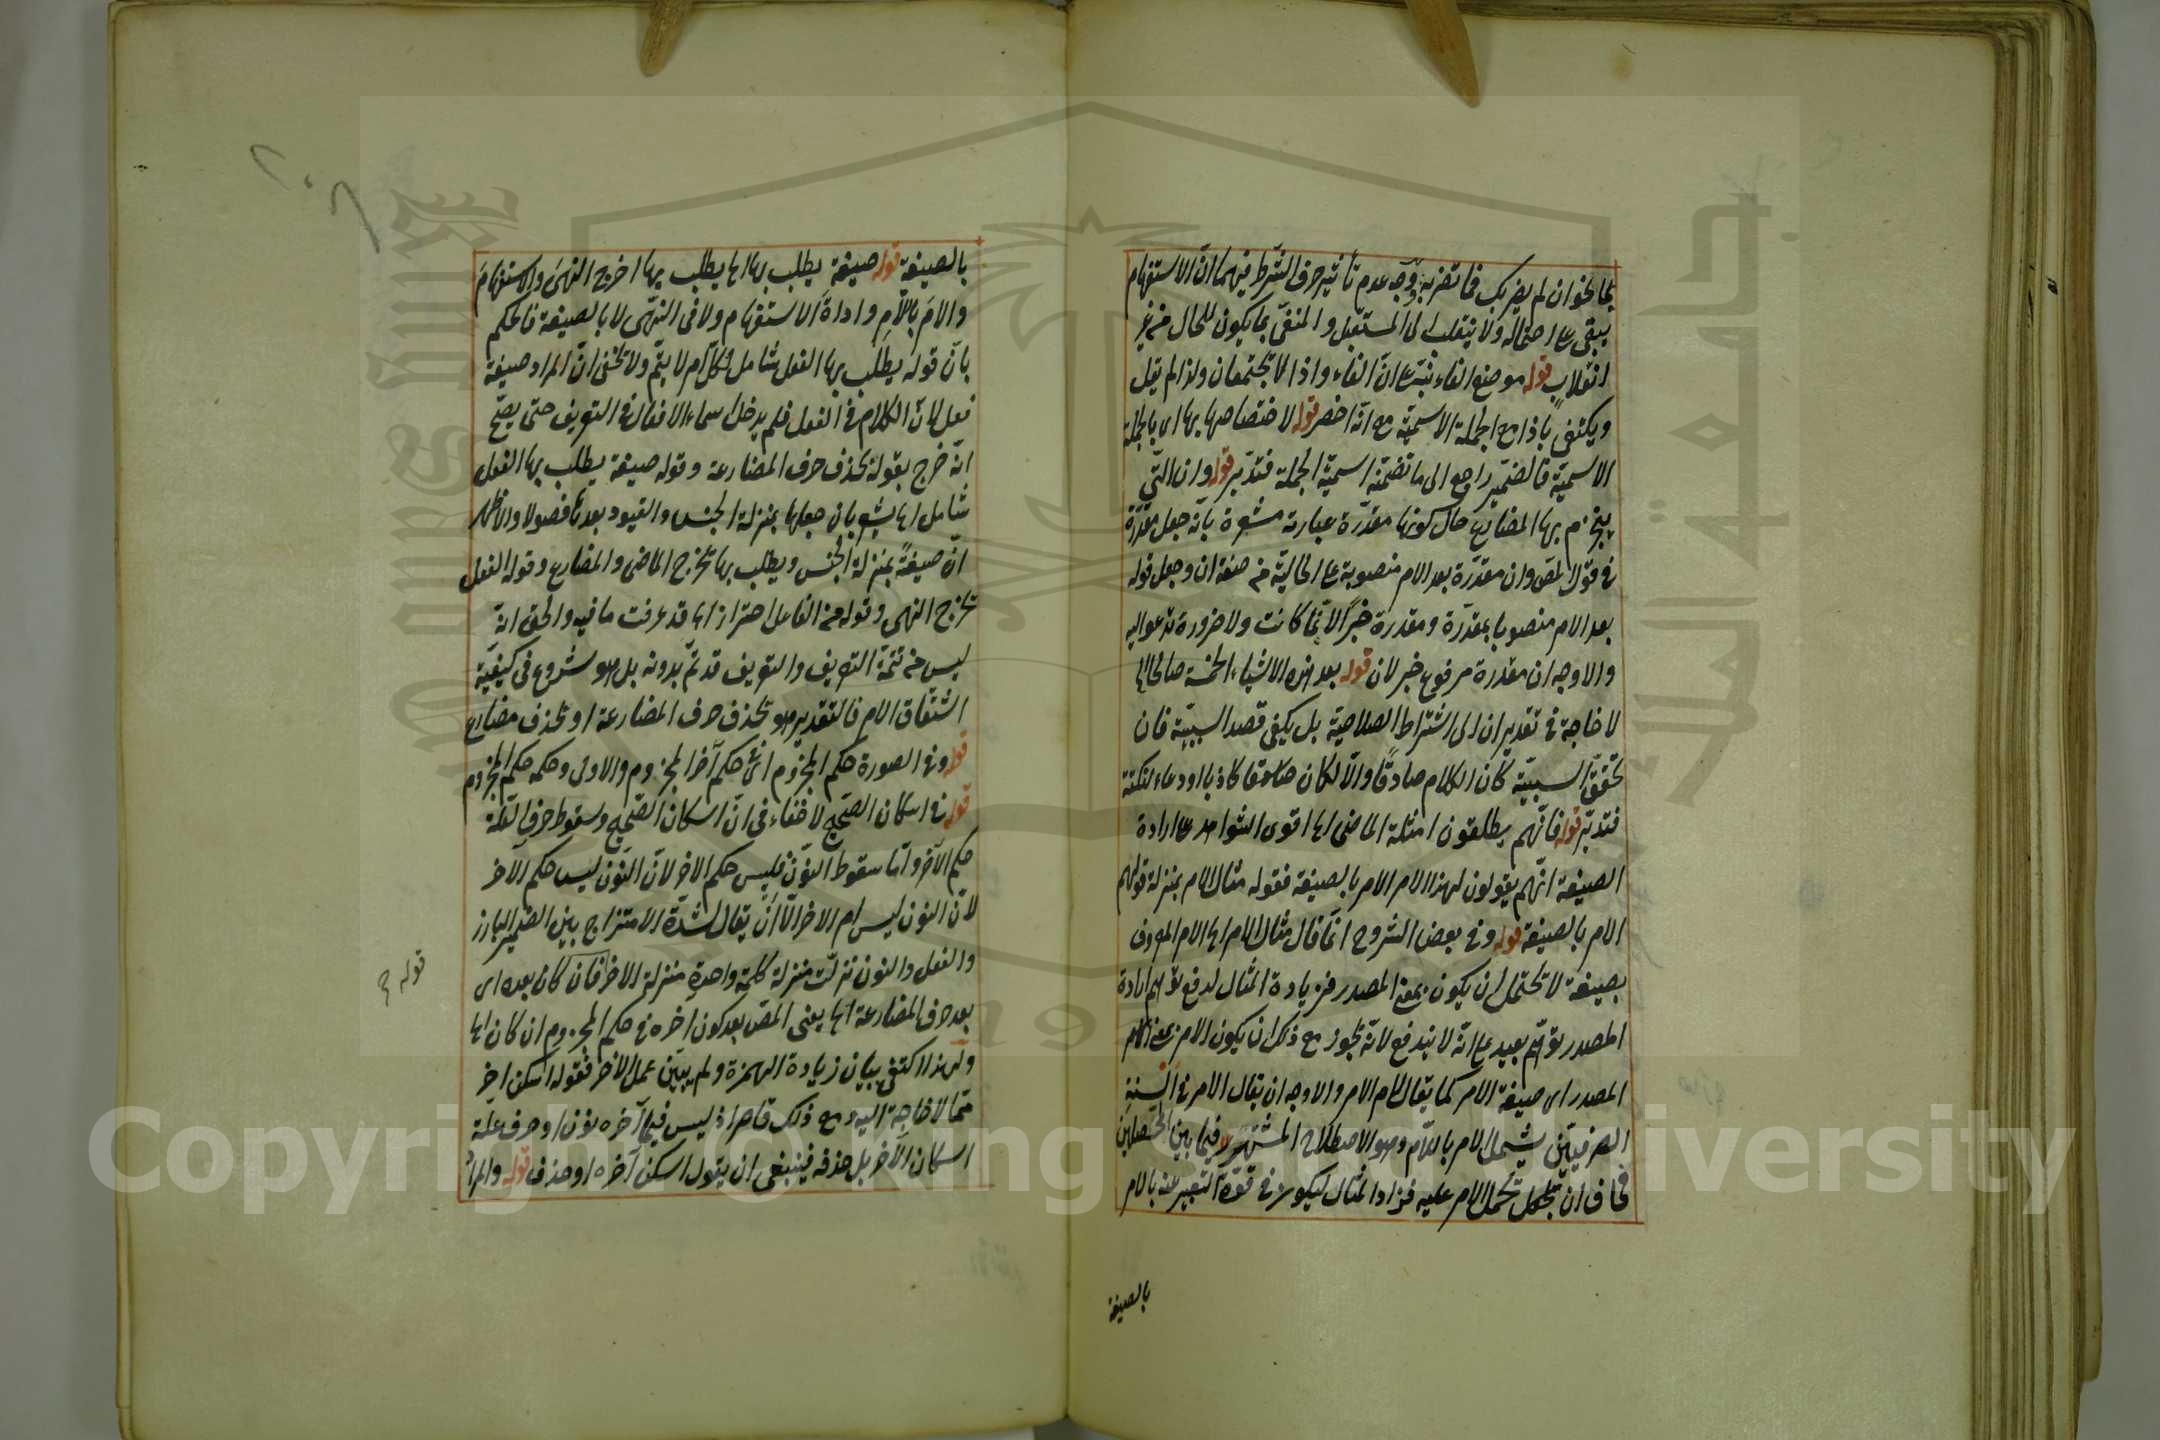 بلما نحو ان لم يضربك فما تضربه ووجه عدم تأثير حرف الشرط فيهما انّ الاستفهام
يبقى على احتماله ولا ينقلب الى المستقبل والمنفىّ بما يكون للحال من غير
انقلاب قوله موضع الفاء نبّه على انّ الفاء واذا لا تجتمعان ولذا لم يقل
ويكتفى باذا مع الجملة الاسميّة مع انّه اخصر قوله لاختصاصها بها اى بالجملة
الاسميّة فالضمير راجع الى ما تضمّنه اسميّة الجملة فتدبّر قوله وان التّى
ينجزم بها المضارع حال كونها مقدّرة عبارته مشعرة بانّه جعل مقدّرة
فى قول المص وان مقدّرة بعد الامر منصوبة على الحاليّة من صفة ان وجعل قوله
بعد الامر منصوبا بمقدّرة ومقدرة خبرًا لانّها كانت ولا ضرورة تدعو اليه
والاوجه ان مقدرة مرفوع خبر لان قوله بعد هذه الاشياء الخمسة صالحا لها
لا حاجة فى تقدير ان الى اشتراط الصلاحيّة بل يكفى قصد السببيّة فان
تحقّق السببيّة كان الكلام صادقًا والّا لكان صادقا كاذبا او دعاء لنكتة
فتدبّر قوله فانّهم يطلقون امثلة الماضى اها اقوى الشواهد على ارادة
الصيغة انّهم يقولون لهذا الامر الامر بالصيغة فقوله مثال الامر بمنزلة قولهم
الامر بالصيغة قوله وفى بعض الشروح انّما قال مثال الامر اها الامر المعروف
بصيغة لا تحتمل ان يكون بمعنى المصدر فزيادة المثال لدفع توهّم ارادة
المصدر توهّم بعيد على انّه لا يندفع لانّه يجوز مع ذلك ان يكون الامر بمعنى الامر
المصدر اى صيغة الامر كما يقال لام الامر والاوجه ان يقال الامر فى السنة
الصرفيّين يشمل الامر باللّام وهو الاصطلاح المشتهر فيما بين المحصّلين
فخاف ان يحمل الامر عليه فزاد المثال ليكون فى قوة التعبير عنه بالامر
بالصيغة
بالصيغة قوله صيغة يطلب بها اها يطلب بها اخرج النهى والاستفهام
والامر باللّام واداة الاستفهام ولا فى النهى لا بالصيغة فالحكم
بانّ قوله يطلب بها الفعل شامل لكلّ امر لا يتمّ ولا تخفى انّ المراد صيغة
فعل لانّ الكلام فى الفعل فلم يدخل اسماء الافعال فى التعريف حتى يصحّ
انّه خرج بقوله بحذف حرف المضارعة وقوله صيغة يطلب بها الفعل
شامل اها يشعر بان جعلها بمنزلة الجنس والقيود بعدها فصولا والاظهر
انّ صيغةً بمنزلة الجنس ويطلب بها تخرج الماضى والمضارع وقوله الفعل
تخرج النهى وقوله من الفاعل احتراز اها قد عرفت ما فيه والحق انّه
ليس من تتمة التعريف والتعريف قد تمّ بدونه بل هو شروع فى كيفيّة
اشتقاق الامر فالتقدير هو بحذف حرف المضارعة او بحذف مضارع
قوله وفى الصورة حكم المجزوم اى حكم آخر المجزوم والاولى وحكمه حكم المجزوم
قوله فى اسكان الصحيح لا خفاء فى انّ اسكان الصّحيح وسقوط حرف العلّة
حكم الآخر وامّا سقوط النون فليس حكم الاخر لانّ النّون ليس حكم الآخر
لانّ النون ليس امر الاخر الّا انّ يقال لشدّة الامتزاج بين الضمير البارز
والفعل والنون نزلت منزلة كلمة واحدة منزلة الاخر فان كان بعده اى
بعد حرف المضارعة اها يعنى المص بعد كون اخره فى حكم المجزوم ان كان اها
ولهذا اكتفى ببيان زيادة الهمزة ولم يبيّن عمل الاخر فقوله اسكن اخر
ممّا لا حاجة اليه ومع ذلك قاصر اذ ليس فيما آخره نون او حرف علّة
اسكان الاخر بل حذفه فينبغى ان يقول اسكن آخره او حذف قوله والمراد
قوله م